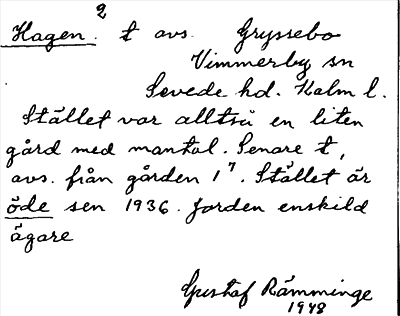 Hagen.² t avs. Gryssebo
Vimmerby sn
Sevede hd. Kalm l.
Stället var alltså en liten
gård med mantal. Senare t,
avs. från gården 1⁷. Stället är
öde sen 1936. Jorden enskild
ägare
Gustaf Rämminge
1948